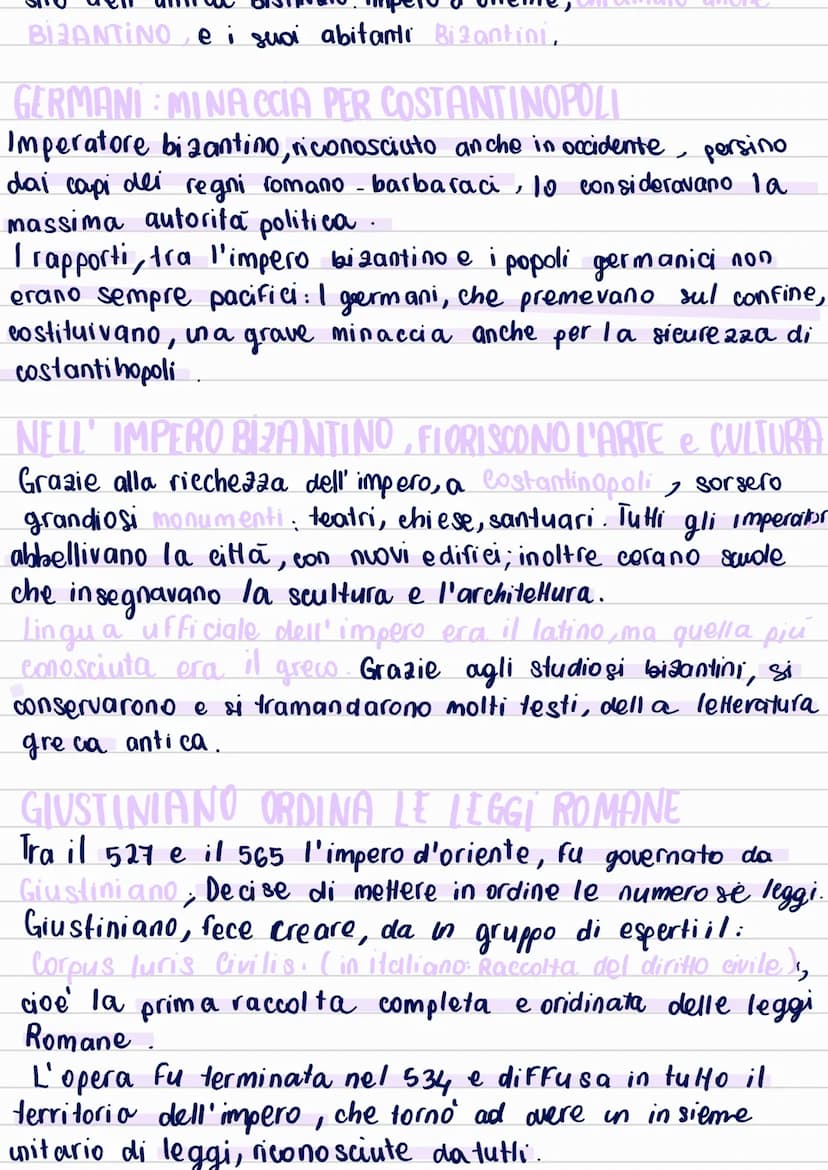 impero d'oriente, chiamato anche
BIZANTINO, e i suoi abitanti Bizantini.
GERMANI: MINACCIA PER COSTANTINOPOLI
Imperatore bizantino, riconosciuto anche in occidente, persino
dai capi dei regni romano-barbaraci, lo consideravano la
massima autorità politica.
I rapporti, tra l'impero bizantino e i popoli germanici non
erano sempre pacifici: I germani, che premevano sul confine,
costituivano, una grave minaccia anche per la sicurezza di
costantinopoli.
NELL' IMPERO BIZANTINO, FIORISCONO L'ARTE e CULTURA
Grazie alla ricchezza dell'impero, a Costantinopoli, sorsero
grandiosi monumenti: teatri, chiese, santuari. Tutti gli imperatori
abbellivano la città, con nuovi edifici; inoltre cerano scuole
che insegnavano la scultura e l'architettura.
Lingua ufficiale dell'impero era il latino, ma quella più
conosciuta era il greco. Grazie agli studiosi bizantini, si
conservarono e si tramandarono molti testi, della letteratura
greca antica.
GIUSTINIANO ORDINA LE LEGGI ROMANE
Tra il 527 e il 565 l'impero d'oriente, fu governato da
Giustiniano; Decise di mettere in ordine le numerose leggi.
Giustiniano, fece creare, da un gruppo di esperti il:
Corpus Iuris Civilis. (in italiano: Raccolta del diritto civile),
cioè la prima raccolta completa e oridinata delle leggi
Romane.
L'opera fu terminata nel 534 e diffusa in tutto il
territorio dell'impero, che tornò ad avere un insieme
unitario di leggi, riconosciute da tutti.